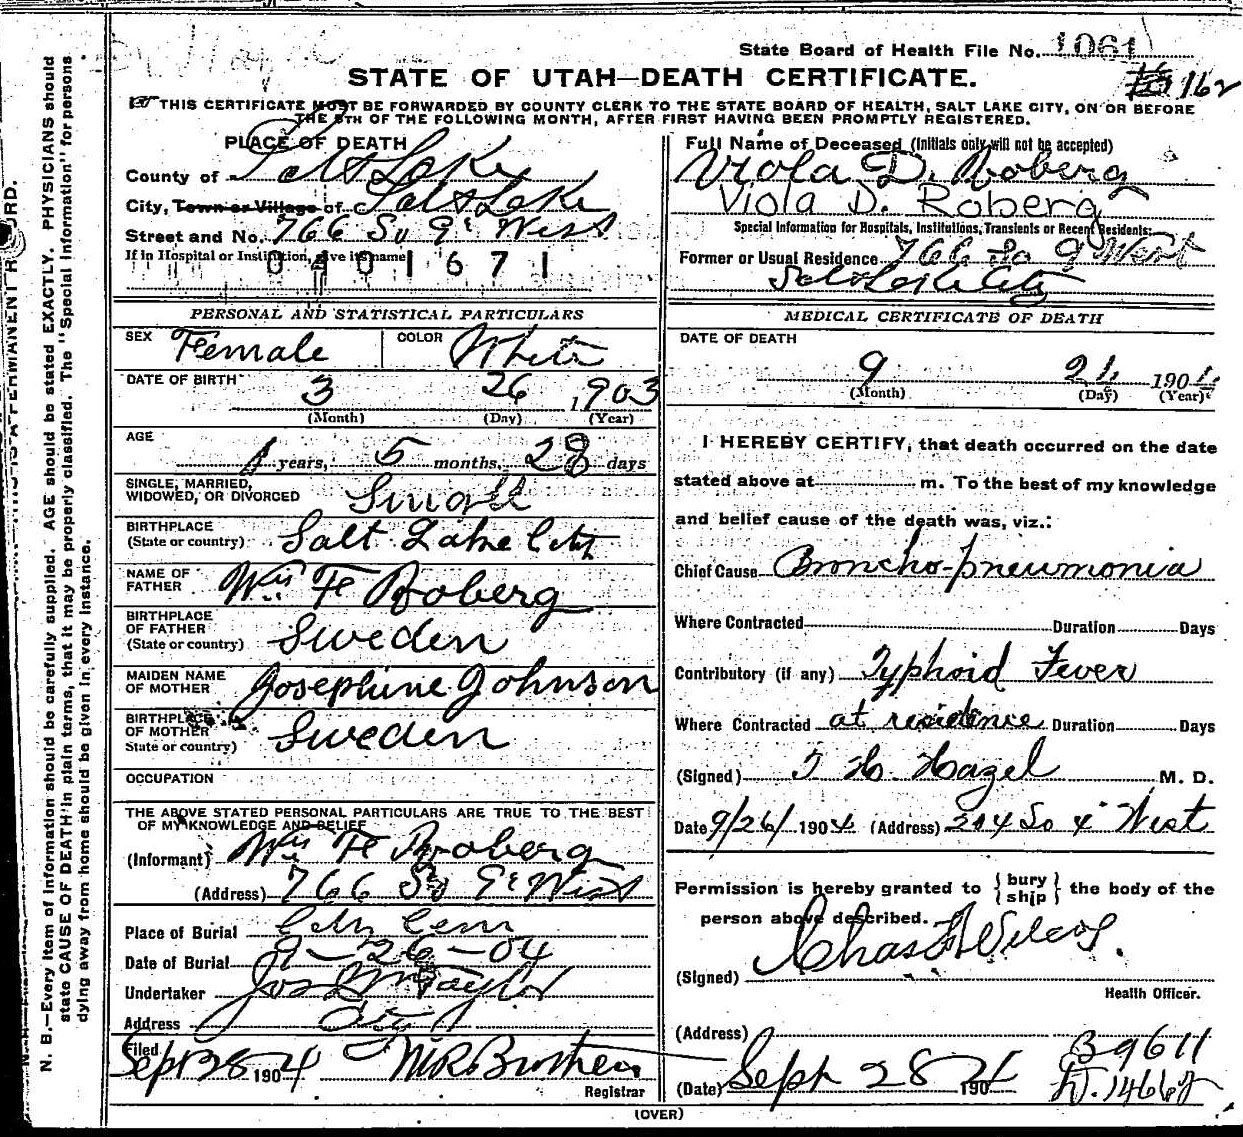 State Board of Health File No. 1061
STATE OF UTAH—DEATH CERTIFICATE.
162
THIS CERTIFICATE MUST BE FORWARDED BY COUNTY CLERK TO THE STATE BOARD OF HEALTH, SALT LAKE CITY, ON OR BEFORE
THE 5TH OF THE FOLLOWING MONTH, AFTER FIRST HAVING BEEN PROMPTLY REGISTERED.
PLACE OF DEATH
County of Salt Lake
City, Town or Village of Salt Lake
Street and No. 766 So 9th West
If in Hospital or Institution, give its name
0401671
PERSONAL AND STATISTICAL PARTICULARS
SEX Female COLOR White
DATE OF BIRTH 3 26 1903
(Month) (Day) (Year)
AGE
1 years, 5 months, 28 days
SINGLE, MARRIED,
WIDOWED, OR DIVORCED Single
BIRTHPLACE
(State or country) Salt Lake City
NAME OF
FATHER Wm F Roberg
BIRTHPLACE
OF FATHER
(State or country) Sweden
MAIDEN NAME
OF MOTHER Josephine Johnson
BIRTHPLACE
OF MOTHER
State or country) Sweden
OCCUPATION
THE ABOVE STATED PERSONAL PARTICULARS ARE TRUE TO THE BEST
OF MY KNOWLEDGE AND BELIEF
(Informant) Wm F Roberg
(Address) 766 So 9th West
Place of Burial City Cem
Date of Burial 9-26-04
Undertaker Jos Wm Taylor
Address City
Filed
Sept 28 1904
Registrar
Full Name of Deceased (Initials only will not be accepted)
Viola D. Roberg
Viola D. Roberg
Special Information for Hospitals, Institutions, Transients or Recent Residents:
Former or Usual Residence 766 So 9 West
Salt Lake City
MEDICAL CERTIFICATE OF DEATH
DATE OF DEATH
9 24 1904
(Month) (Day) (Year)
I HEREBY CERTIFY, that death occurred on the date
stated above at m. To the best of my knowledge
and belief cause of the death was, viz.:
Chief Cause Broncho-pneumonia
Where Contracted Duration Days
Contributory (if any) Typhoid Fever
Where Contracted at residence Duration Days
(Signed) T. H. Hazel M. D.
Date 9/26/1904 (Address) 214 So 4th West
Permission is hereby granted to { bury
ship } the body of the
person above described.
(Signed) Chas F Wilcox.
Health Officer.
(Address)
B9611
(Date) Sept 28 1904
D.14662
(OVER)
N. B.—Every item of Information should be carefully supplied. AGE should be stated EXACTLY. PHYSICIANS should
state CAUSE OF DEATH in plain terms, that it may be properly classified. The "Special Information" for persons
dying away from home should be given in every instance.